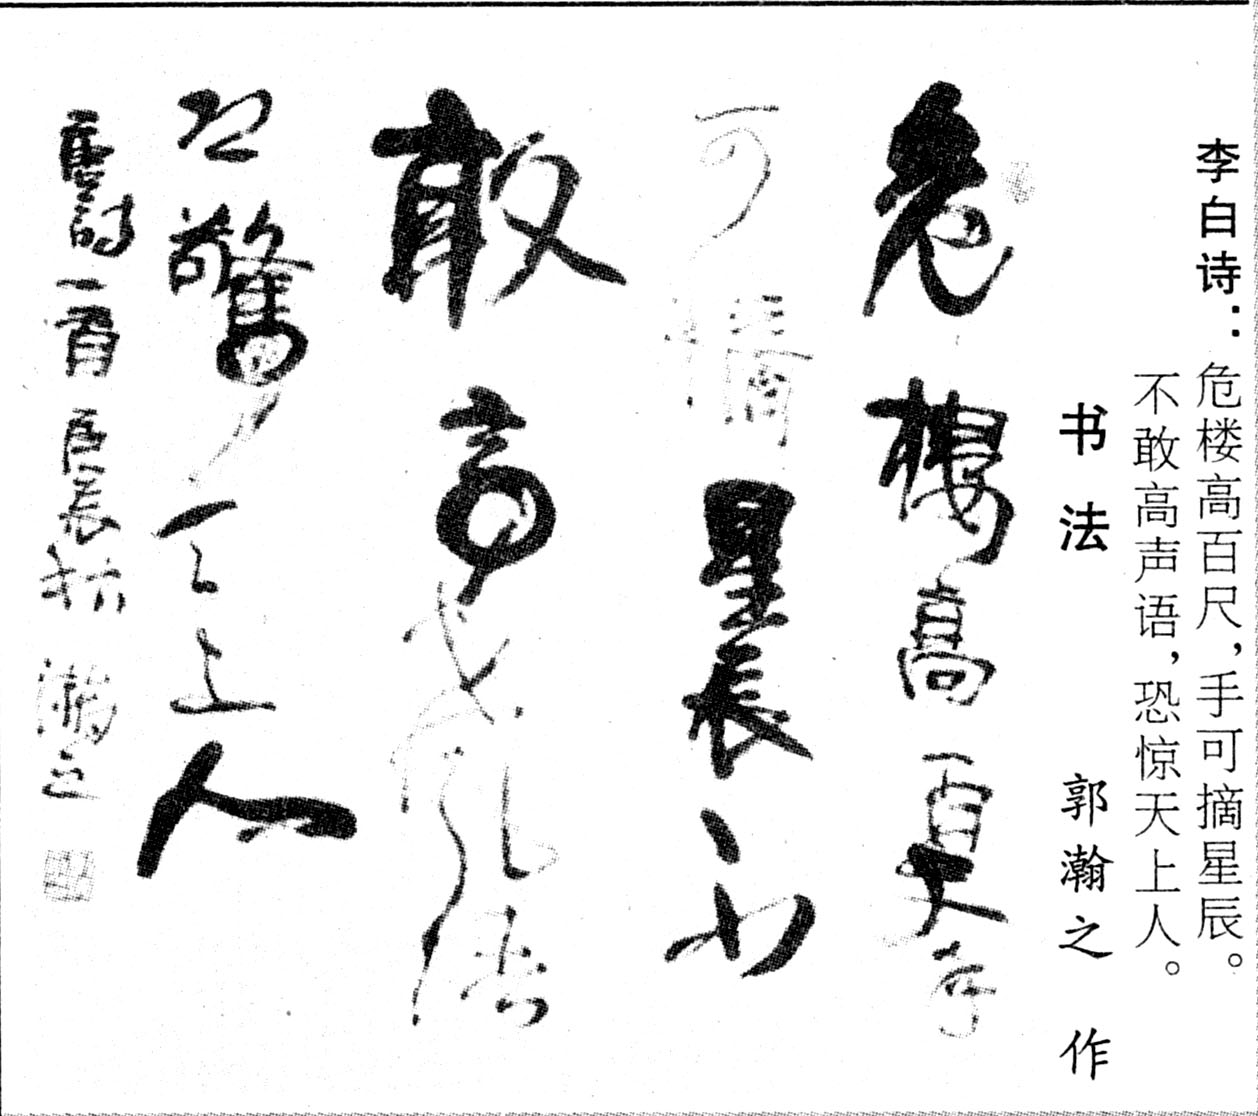 李白诗：危楼高百尺，手可摘星辰。
不敢高声语，恐惊天上人。
书法 郭瀚之 作
危楼高百尺手
可摘星辰不
敢高声语
恐惊天上人
唐诗一首 辰秋 瀚之